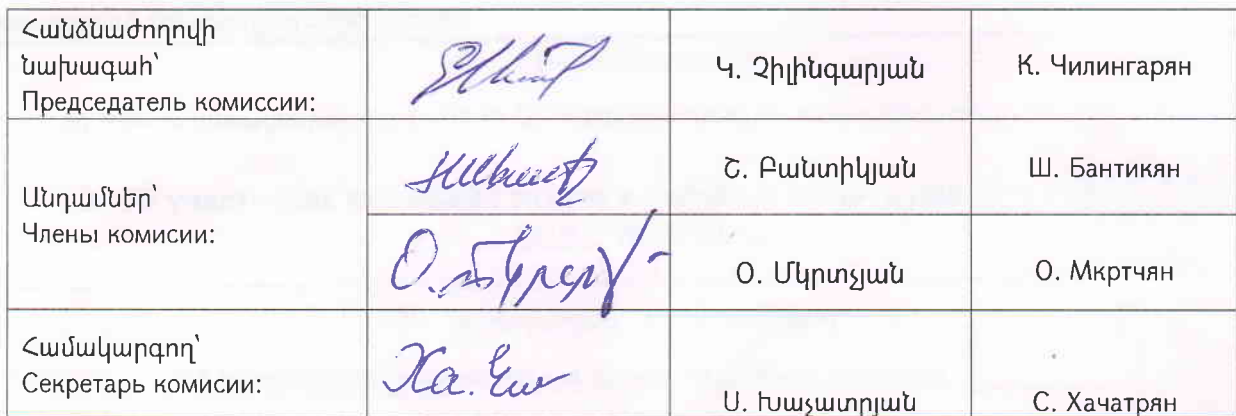 Հանձնաժողովի
նախագահ՝
Председатель комиссии:
Կ. Չիլինգարյան
К. Чилингарян
Անդամներ՝
Члены комисии:
Շ. Բանտիկյան
Ш. Бантикян
Օ. Մկրտչյան
О. Мкртчян
Համակարգող՝
Секретарь комисии:
Ս. Խաչատրյան
С. Хачатрян